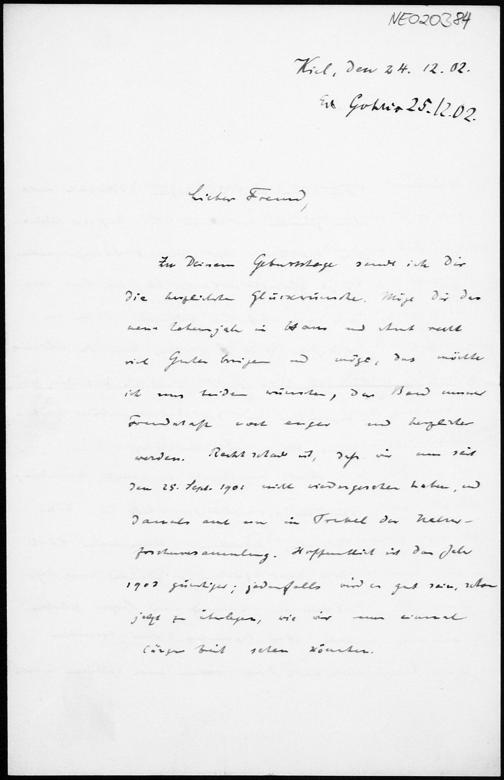 NE020384
Kiel, den 24. 12. 02.
Erh. 25. 12. 02.
Lieber Freund,
Zu Deinem Geburtstage sende ich Dir
die herzlichsten Glückwünsche. Möge Dir das
neue Lebensjahr in Haus und Amt recht
viel Gutes bringen und möge, das möchte
ich uns beiden wünschen, das Band unserer
Freundschaft noch enger und herzlicher
werden. Recht schade ist, daß wir uns seit
dem 25. Sept. 1901 nicht wiedergesehen haben, und
damals auch nur im Trubel der Natur-
forscherversammlung. Hoffentlich ist das Jahr
1903 günstiger; jedenfalls wird es gut sein, schon
jetzt zu überlegen, wie wir uns einmal
längere Zeit sehen könnten.